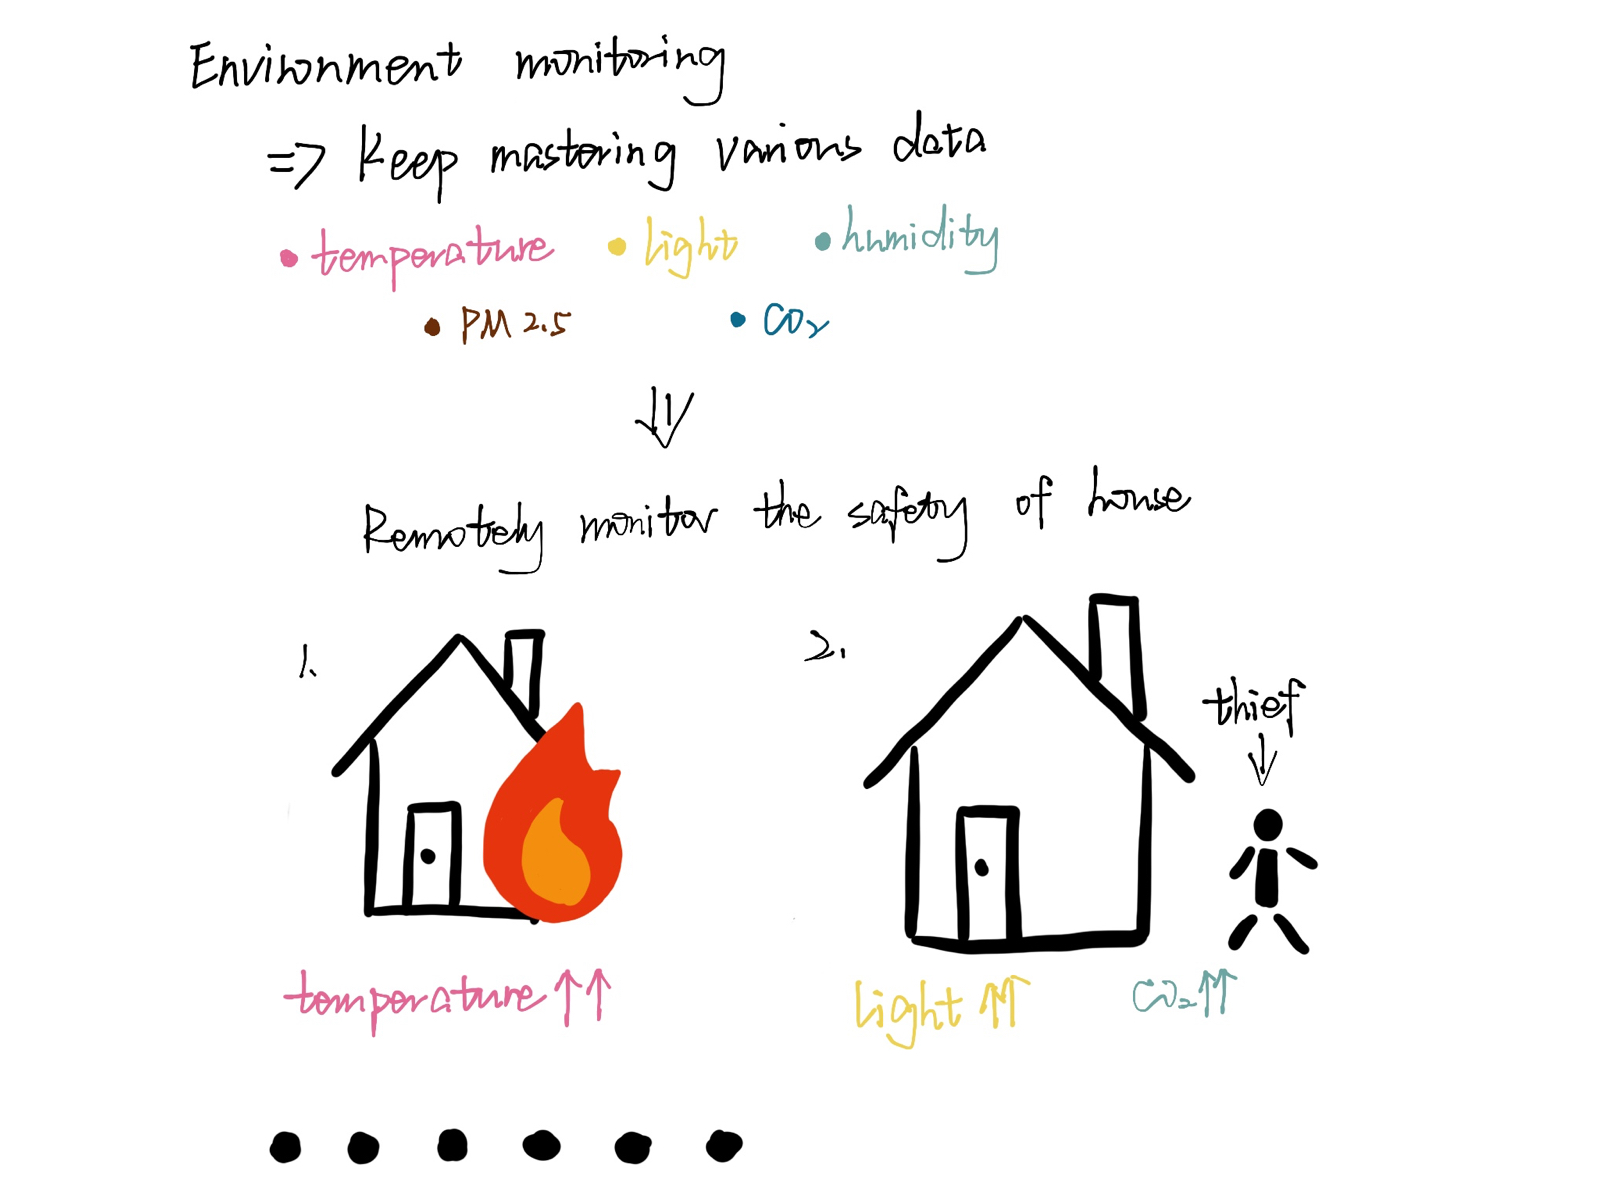 Environment monitoring
=> Keep mastering various data
• temperature • light • humidity
• PM 2.5 • CO₂
Remotely monitor the safety of house
1. 2.
thief
temperature ↑↑ light ↑↑ CO₂ ↑↑